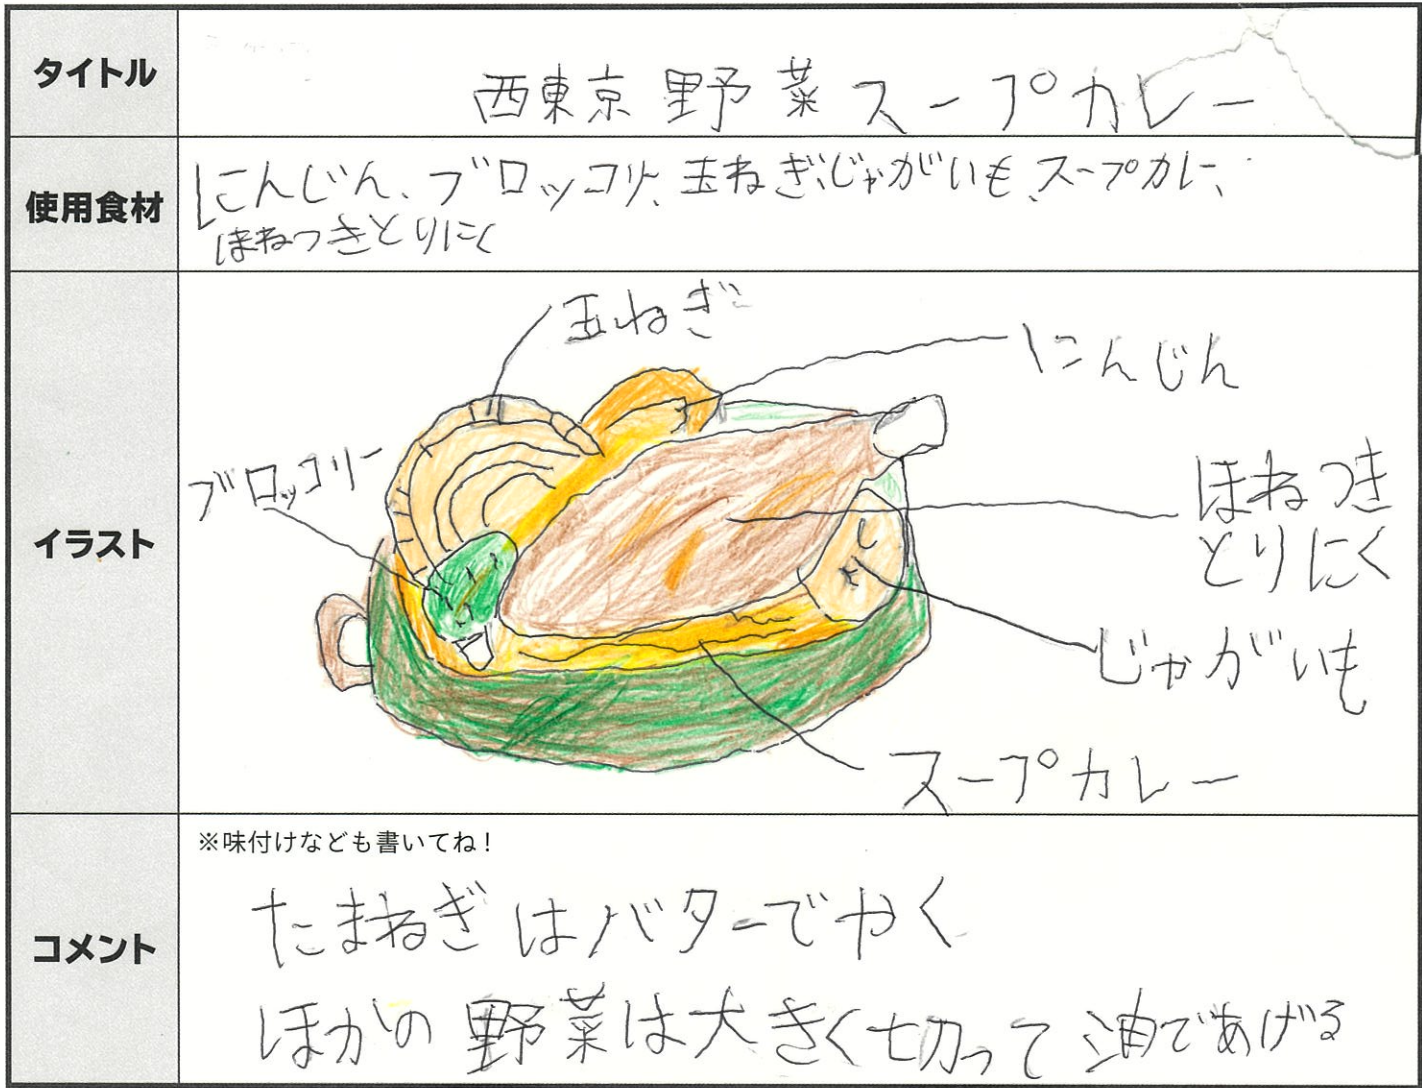 タイトル
西東京野菜スープカレー
使用食材
にんじん、ブロッコリ、玉ねぎ、じゃがいも、スープカレー、
ほねつきとりにく
イラスト
玉ねぎ
にんじん
ブロッコリー
ほねつき
とりにく
じゃがいも
スープカレー
コメント
※味付けなども書いてね！
たまねぎはバターでやく
ほかの野菜は大きく切って油であげる